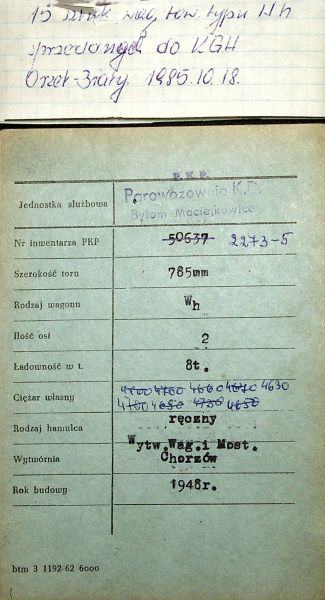 15 sztuk wag. tow. typu Wh
sprzedanych do KGH
Orzeł-Biały. 1985.10.18.
P.K.P.
Parowozownia K.D.
Bytom-Maciejkowice
Jednostka służbowa
Nr inwentarza PKP 50637 2273-5
Szerokość toru 785mm
Rodzaj wagonu Wh
Ilość osi 2
Ładowność w t. 8t.
4700 4760 4660 4670 4630
Ciężar własny
4700 4650 4750 4650
Rodzaj hamulca ręczny
Wytw.Wag.i Most.
Wytwórnia Chorzów
Rok budowy 1948r.
btm 3 1192-62 6000